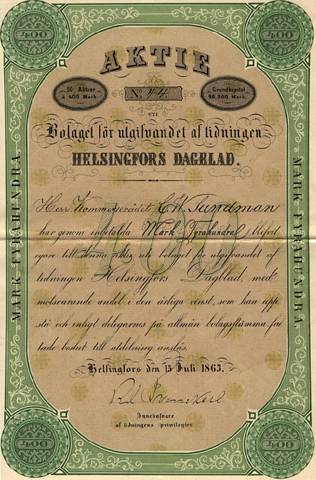 400
400
AKTIE
50 Aktier
à 400 Mark.
No 14.
Grundkapital
uti
Bolaget för utgifvandet af tidningen
HELSINGFORS DAGBLAD.
Herr Kommerserådet
har genom inbetalda Mark Fyrahundra blifvit
egare till denna aktie uti bolaget för utgifvandet af
tidningen Helsingfors Dagblad, med
motsvarande andel i den årliga vinst, som kan upp-
stå och enligt delegarnes på allmän bolagsstämma fat-
tade beslut till utdelning anslås.
Helsingfors den 15 Juli 1865.
Innehafvare
af tidningens privilegier
MARK FYRAHUNDRA.
MARK FYRAHUNDRA
400
400
400